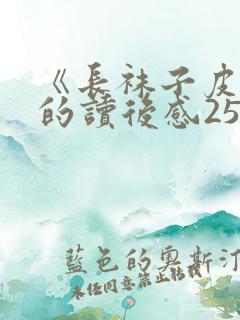 《長袜子皮
的讀後感25
藍色的奧斯汀
未经同意禁止转载